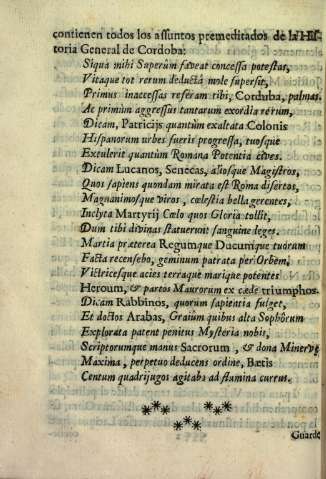 contienen todos los assuntos premeditados de la His-
toria General de Cordoba:
Siqua mihi Superûm faveat concessa potestas,
Vitaque tot rerum deductâ mole supersit,
Primus inaccessas referam tibi, Corduba, palmas.
Ac primùm aggressus tantarum exordia rerum,
Dicam, Patricijs quantùm exaltata Colonis
Hispanorum urbes fueris progressa, tuosque
Extulerit quantùm Romana Potentia cives.
Dicam Lucanos, Senecas, aliosque Magistros,
Quos sapiens quondam mirata est Roma disertos,
Magnanimosque viros, cœlestia bella gerentes,
Inclyta Martyrij Cœlo quos Gloria tollit,
Dum tibi divinas statuerunt sanguine leges.
Martia præterea Regumque Ducumque tuorum
Facta recensebo, geminum patrata per Orbem,
Victricesque acies terraque marique potentes
Heroum, & partos Maurorum ex cæde triumphos.
Dicam Rabbinos, quorum sapientia fulget,
Et doctos Arabas, Graiûm quibus alta Sophôrum
Explorata patent penitus Mysteria nobis,
Scriptorumque manus Sacrorum, & dona Minervæ
Maxima, perpetuo deducens ordine, Bætis
Centum quadrijugos agitabo ad flumina currus.
Guarde